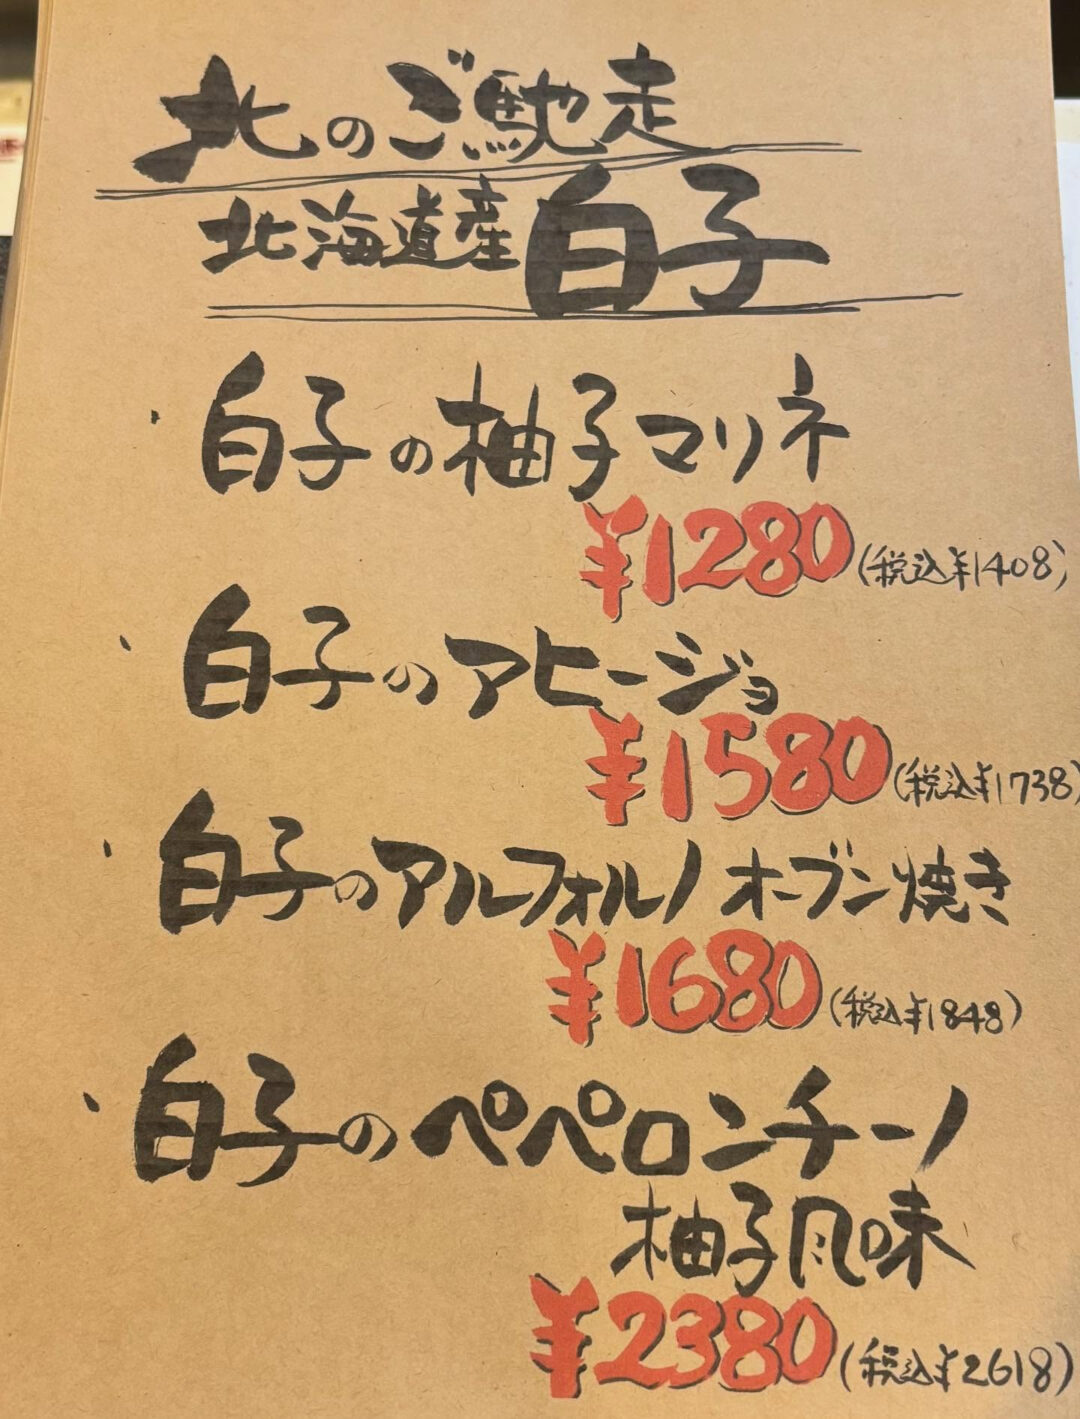 北のご馳走
北海道産白子
・白子の柚子マリネ
¥1280(税込¥1408)
・白子のアヒージョ
¥1580(税込¥1738)
・白子のアルフォルノ オーブン焼き
¥1680(税込¥1848)
・白子のペペロンチーノ
柚子風味
¥2380(税込¥2618)